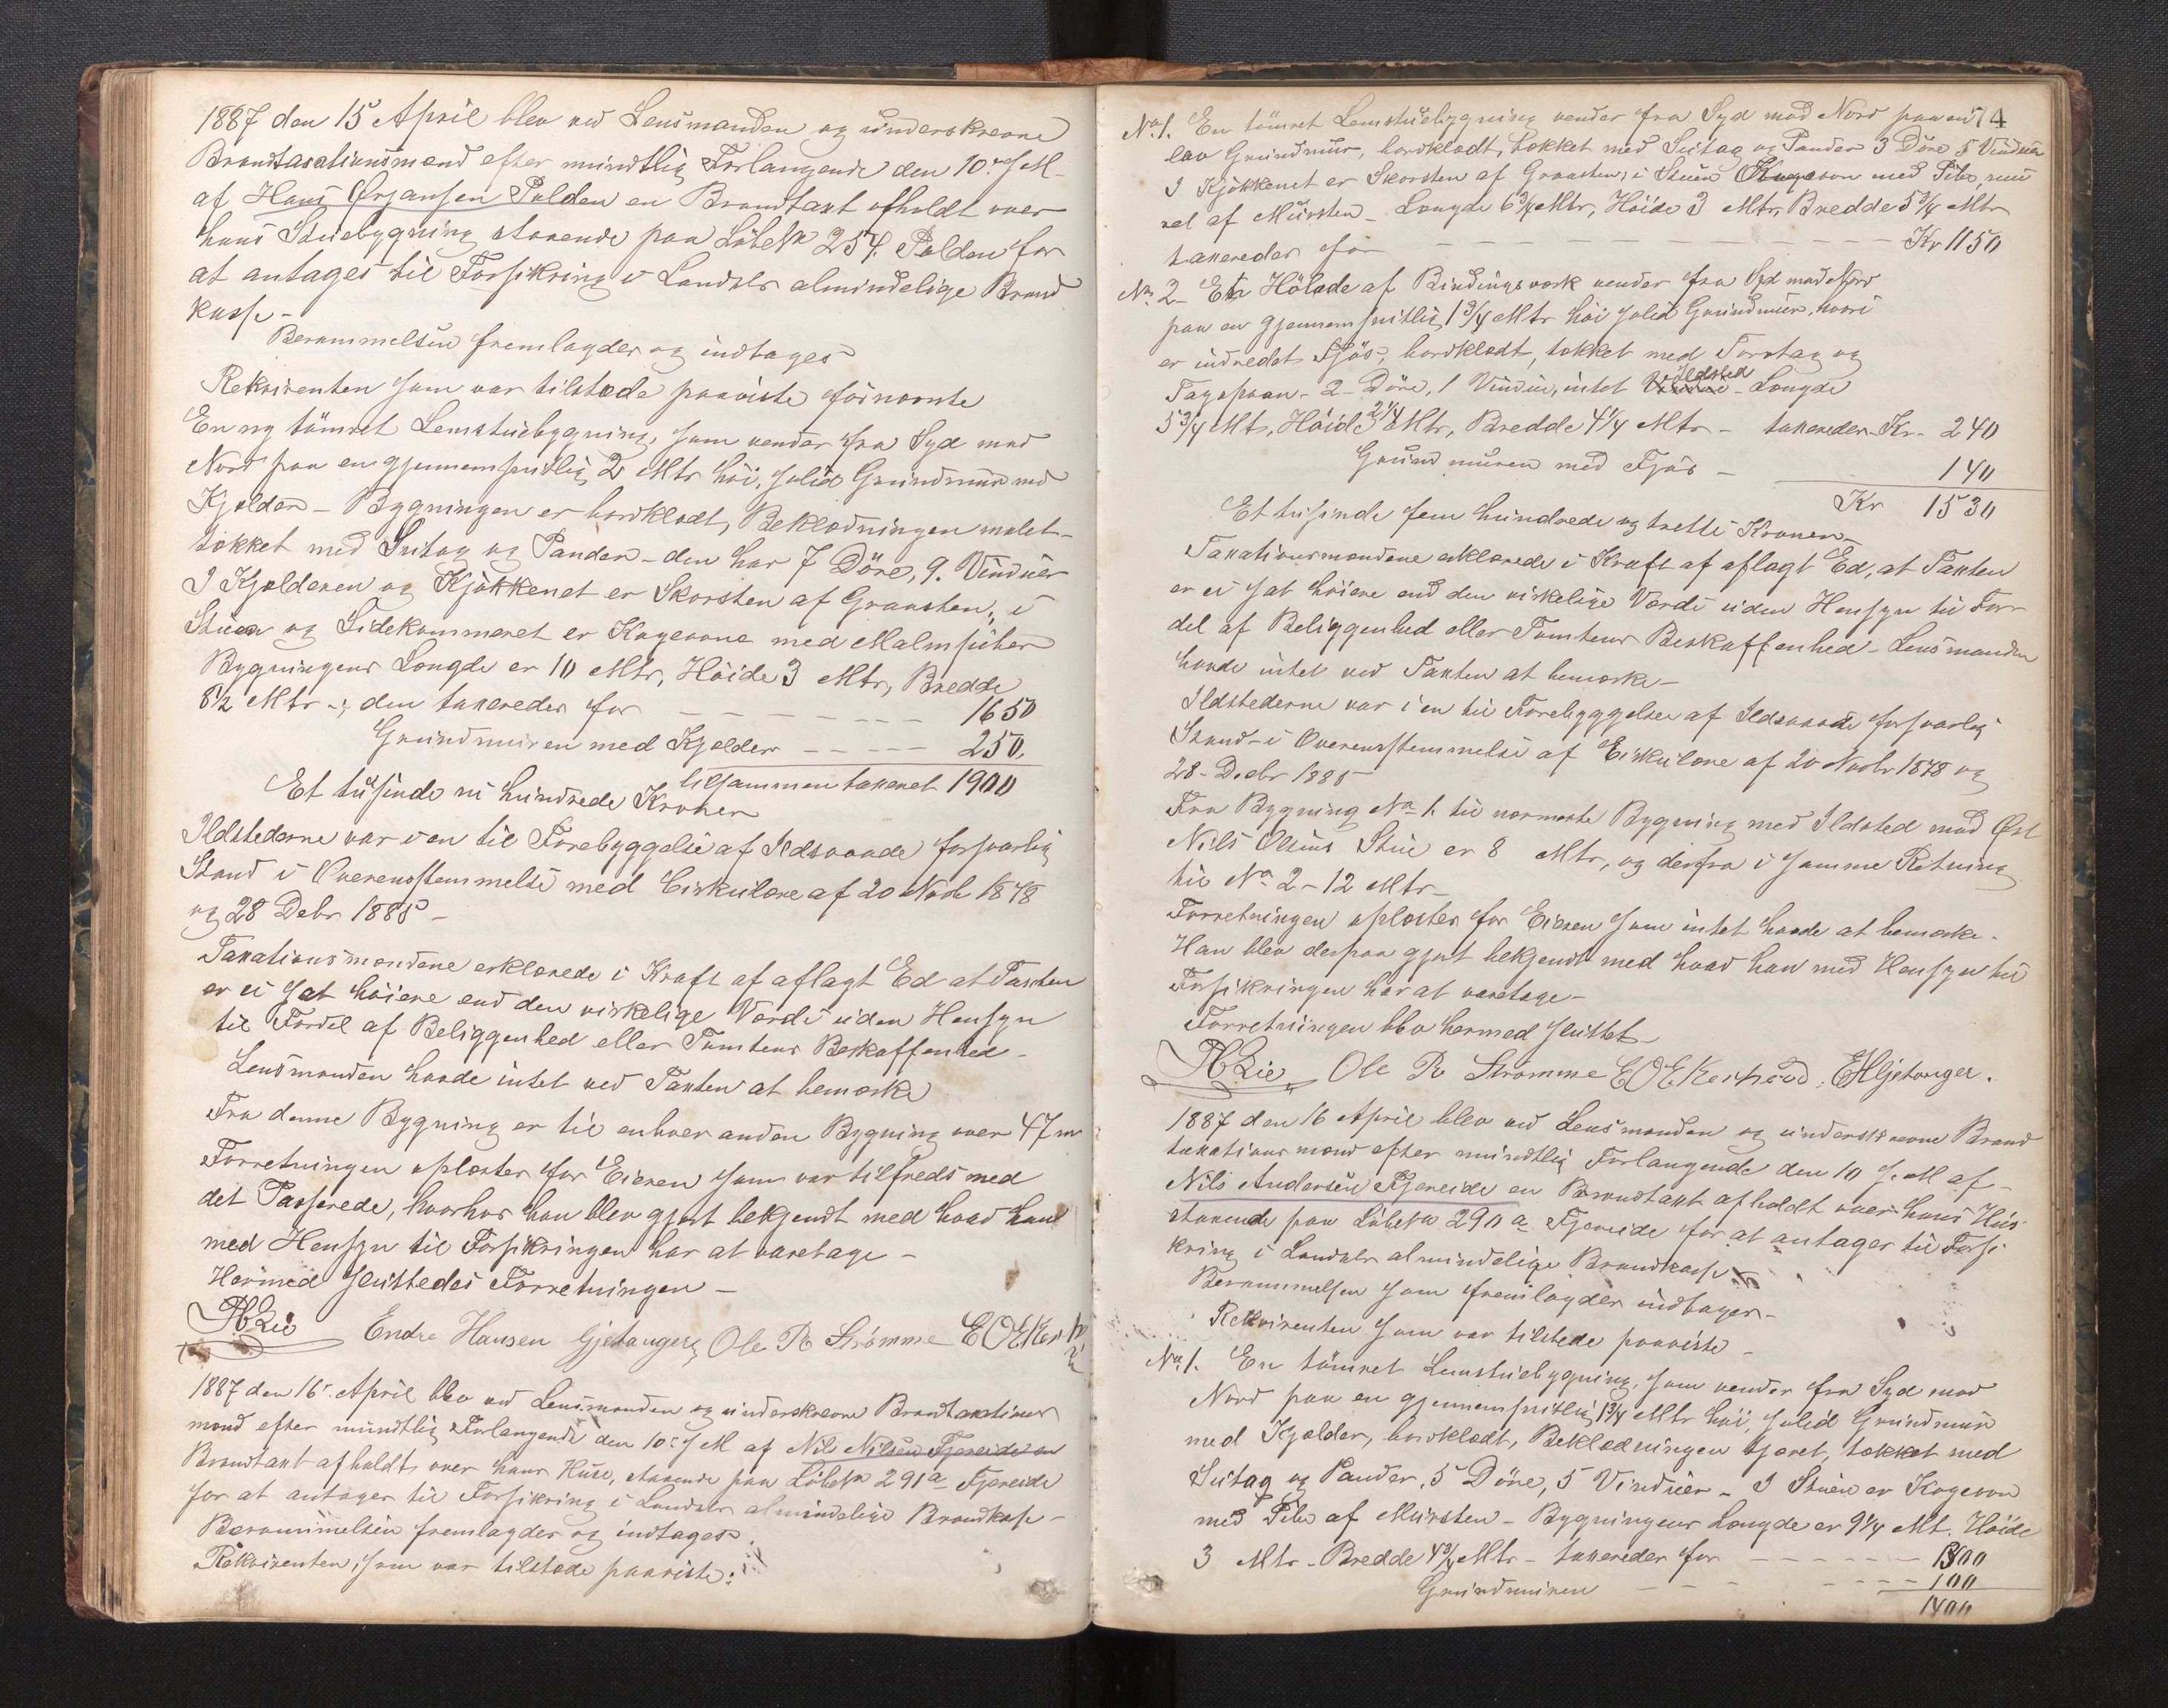 1887 den 15 April blev ved Lensmanden og underskrevne
Brandtaxationsmænd efter mundtlig Forlangende den 10de s M
af Hans Ørjansen Polden en Brandtaxt afholdt over
hans Stuebygning staaende paa Løbe No 254. Polden for
at antages til Forsikring i Landets almindelige Brand
kasse -
Berammelsen fremlagdes og indtages
Rekvirenten som var tilstede paaviste følnævnte
En ny tømret Lemstuebygning, som vender fra Syd mod
Nord paa en gjennemsnitlig 2 Mtr høi, solid Grundmur med
Kjelder - Bygningen er bordklædt, Beklædningen malet -
tækket med Sutag og Pander - den har 7 Döre, 9. Vinduer
I Kjelderen og Kjøkkenet er Skorsten af Graasten, i
Stuen og Sidekammeret er Kogeovne med Malmpiber
Bygningens Længde er 10 Mtr, Høide 3 Mtr, Bredde
8½ Mtr -; den taxeredes for - - - - - - - 1650
Grundmuren med Kjelder - - - - - 250.
tilsammen taxeret 1900
Et tusinde ni hundrede Kroner
Ildstederne var i en til Forebyggelse af Ildsvaade forsvarlig
Stand i Overensstemmelse med Cirkulære af 20 Novb 1878
og 28 Debr 1885 -
Taxationsmændene erklærede i Kraft af aflagt Ed at Taxten
er ei sat høiere end den virkelige Værdi uden Hensyn
til Fordel af Beliggenhed eller Tomtens Beskaffenhed -
Lensmanden havde intet ved Taxten at bemærke
Fra denne Bygning er til enhver anden Bygning over 47 m
Forretningen oplæstes for Eieren som var tilfreds med
det Passerede, hvorhos han blev gjort bekjendt med hvad han
med Hensyn til Forsikringen har at varetage -
Hermed sluttedes Forretningen -
Endre Hansen Gjetanger, Ole R Strømme
1887 den 16 April blev ved Lensmanden og underskrevne Brandtaxations
mænd efter mundtlig Forlangende den 10 s M af Nils Nilsen Fjereide en
Brandtaxt afholdt over hans Huse, staaende paa Løbe No 291a Fjereide
for at antages til Forsikring i Landets almindelige Brandkasse -
Berammelsen fremlagdes og indtages.
Rekvirenten, som var tilstede paaviste:
74
No 1. En tømret Lemstuebygning vender fra Syd mod Nord paa en
lav Grundmur, bordklædt, tækket med Sutag og Pander 3 Døre 5 Vinduer
I Kjøkkenet er Skorsten af Graasten, i Stuen Kogeovn med Pibe, mu
ret af Mursten - Længde 6¾ Mtr, Høide 3 Mtr, Bredde 5¾ Mtr
taxeredes for - - - - - - - - - Kr 1150
No 2 - En Hølade af Bindingsværk vender fra Syd mod Nord
paa en gjennemsnitlig 1¾ Mtr høi solid Grundmur, hvori
er indredet Fjøs, bordklædt, tækket med Torvtag og
Tagspaan - 2 - Døre, 1 Vindu, intet Ildsted - Længde
5¾ Mt, Høide 2¼ Mtr, Bredde 4¼ Mtr - taxeredes Kr - 240
Grundmuren med Fjøs - 140
Kr 1530
Et tusinde fem hundrede og tretti Kroner -
Taxationsmændene erklærede i Kraft af aflagt Ed, at Taxten
er ei sat høiere end den virkelige Værdi uden Hensyn til For-
del af Beliggenhed eller Tomtens Beskaffenhed - Lensmanden
havde intet ved Taxten at bemærke -
Ildstederne var i en til Forebyggelse af Ildsvaade forsvarlig
Stand - i Overensstemmelse af Cirkulære af 20 Novbr 1878 og
28 - Debr 1885 -
Fra Bygning No 1. til nærmeste Bygning med Ildsted mod Øst
Nils Olsens Stue er 8 Mtr, og derfra i samme Retning
til No 2 - 12 Mtr -
Forretningen oplæstes for Eieren som intet havde at bemærke.
Han blev derpaa gjort bekjendt med hvad han med Hensyn til
Forsikringen har at varetage -
Forretningen blev hermed sluttet -
Ole R Strømme
1887 den 16 April blev ved Lensmanden og underskrevne Brand
taxationsmænd efter mundtlig Forlangende den 10 s. M af -
Nils Andersen Fjereide en Brandtaxt afholdt over hans Hus
staaende paa Løbe No 290 a Fjereide for at antages til Forsi-
kring i Landets almindelige Brandkasse
Berammelsen som fremlagdes indtages -
Rekvirenten som var tilstede paaviste -
No 1. En tømret Lemstuebygning, som vender fra Syd mod
Nord paa en gjennemsnitlig 1¾ Mtr høi, solid Grundmur
med Kjelder, bordklædt, Beklædningen tjæret, tækket med
Sutag og Pander, 5 Døre, 5 Vinduer - I Stuen er Kogeovn
med Pibe af Mursten - Bygningens Længde er 9¼ Mt. Høide
3 Mtr - Bredde 4¾ Mtr - taxeredes for - - - - - - 1300
Grundmuren - - - - - - - 100
1400